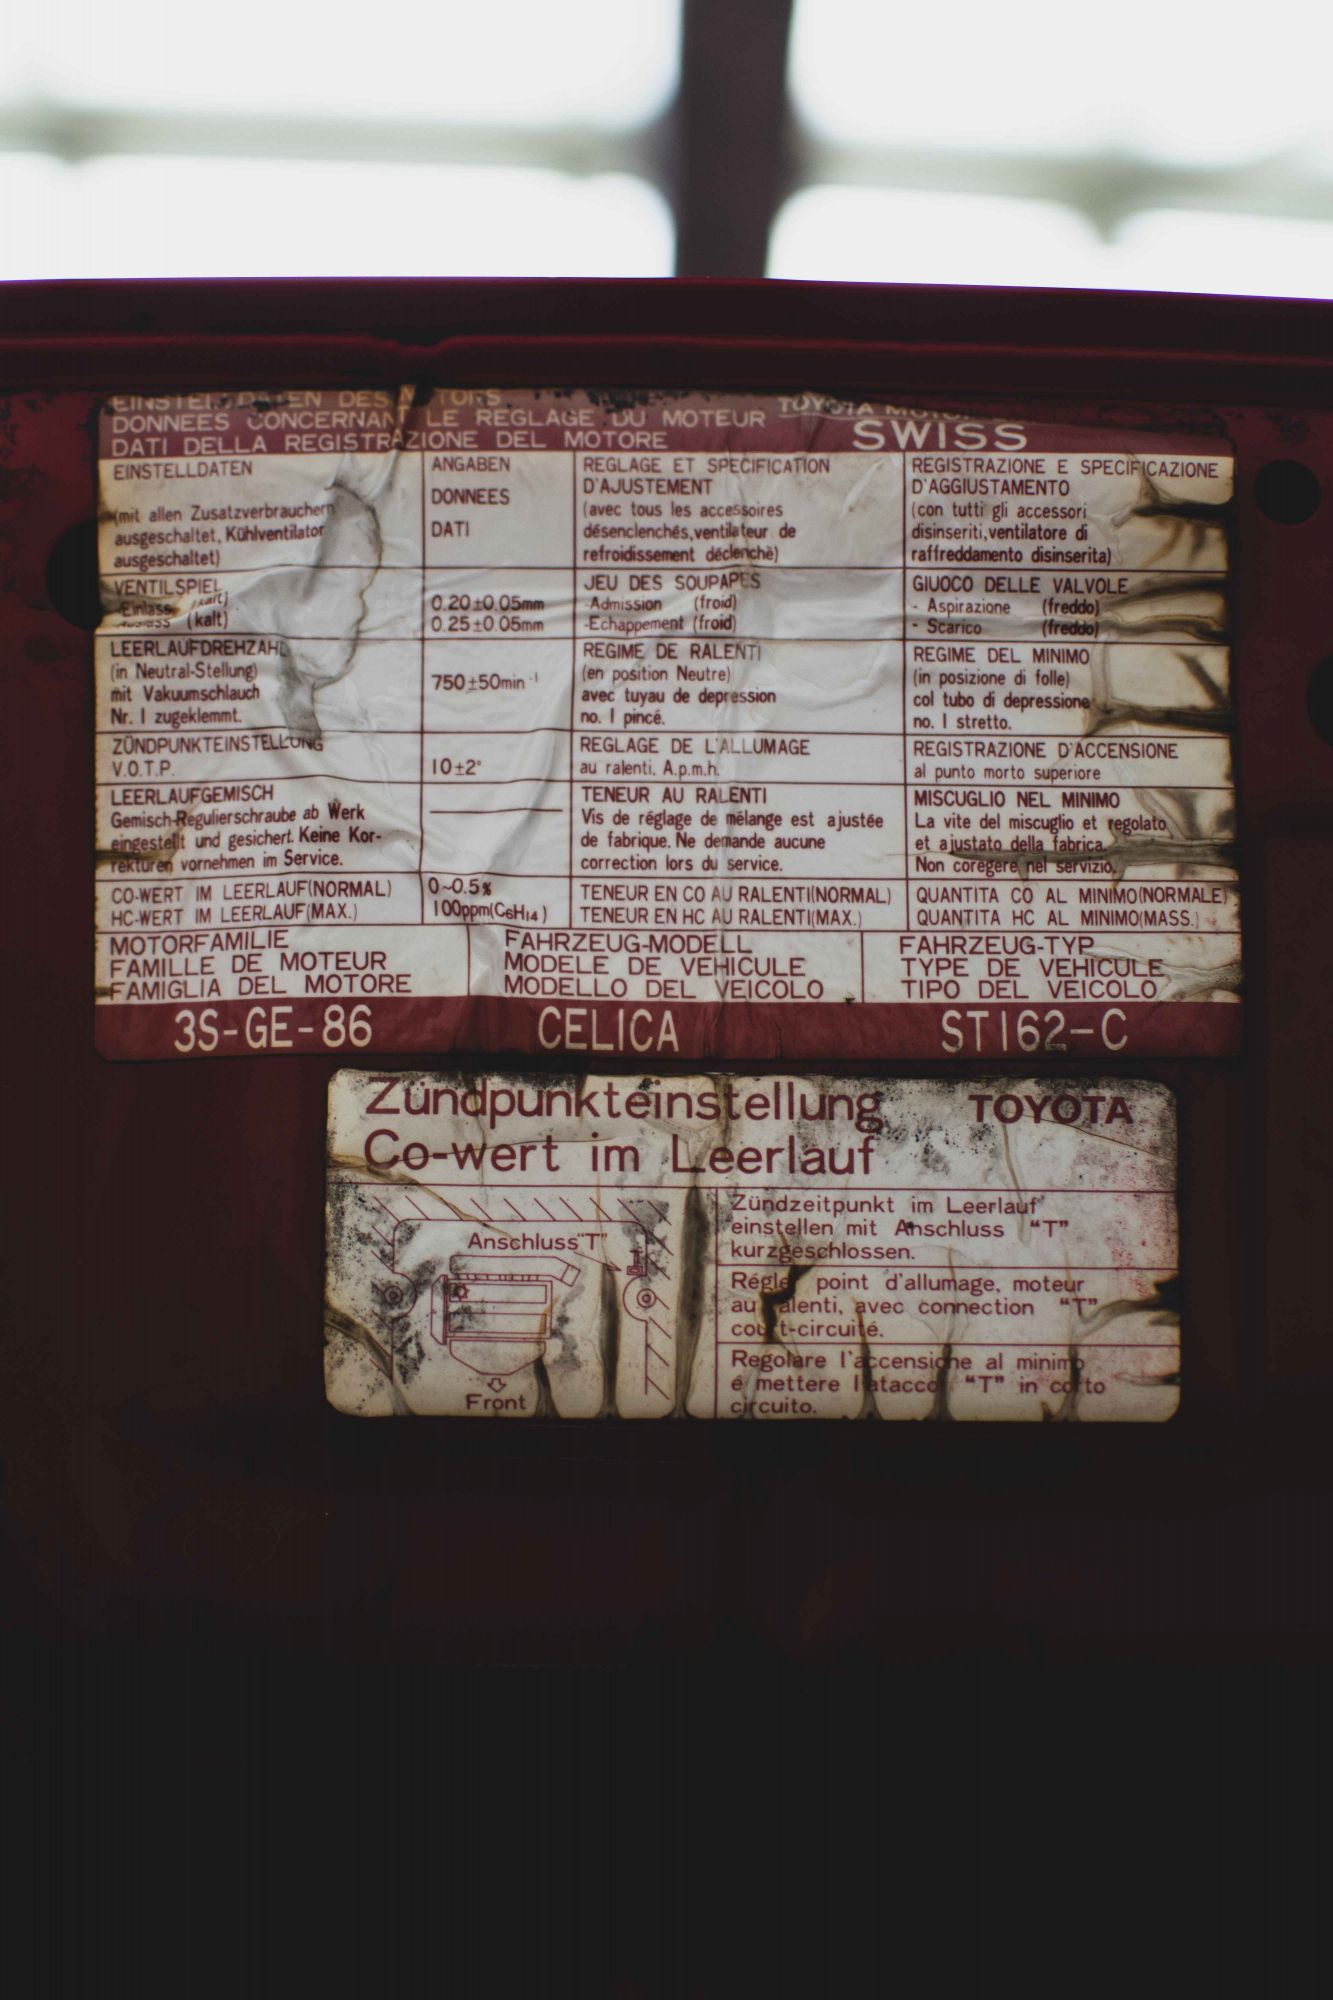 DES
DONNEES CONCERNANT LE REGLAGE DU MOTEUR
DATI DELLA REGISTRAZIONE DEL MOTORE
TOYOTA
SWISS
EINSTELLDATEN
(mit allen Zusatzverbrauchern
ausgeschaltet, Kühlventilator
ausgeschaltet)
ANGABEN
DONNEES
DATI
REGLAGE ET SPECIFICATION
D'AJUSTEMENT
(avec tous les accessoires
désenclenchés,ventilateur de
refroidissement déclenchè)
REGISTRAZIONE E SPECIFICAZIONE
D'AGGIUSTAMENTO
(con tutti gli accessori
disinseriti,ventilatore di
raffreddamento disinserita)
VENTILSPIEL
-Einlass (kalt)
(kalt)
0.20±0.05mm
0.25±0.05mm
JEU DES SOUPAPES
-Admission (froid)
-Echappement (froid)
GIUOCO DELLE VALVOLE
- Aspirazione (freddo)
- Scarico (freddo)
LEERLAUFDREHZAHL
(in Neutral-Stellung)
mit Vakuumschlauch
Nr. 1 zugeklemmt.
750±50min⁻¹
REGIME DE RALENTI
(en position Neutre)
avec tuyau de depression
no. 1 pincé.
REGIME DEL MINIMO
(in posizione di folle)
col tubo di depressione
no. 1 stretto.
ZÜNDPUNKTEINSTELLUNG
V.O.T.P.
10±2°
REGLAGE DE L'ALLUMAGE
au ralenti, A.p.m.h.
REGISTRAZIONE D'ACCENSIONE
al punto morto superiore
LEERLAUFGEMISCH
Gemisch-Regulierschraube ab Werk
eingestellt und gesichert. Keine Kor-
rekturen vornehmen im Service.
TENEUR AU RALENTI
Vis de réglage de mélange est ajustée
de fabrique. Ne demande aucune
correction lors du service.
MISCUGLIO NEL MINIMO
La vite del miscuglio et regolato
et ajustato della fabrica.
Non coregere nel servizio.
CO-WERT IM LEERLAUF(NORMAL)
HC-WERT IM LEERLAUF(MAX.)
0~0.5%
100ppm(C6H14)
TENEUR EN CO AU RALENTI(NORMAL)
TENEUR EN HC AU RALENTI(MAX.)
QUANTITA CO AL MINIMO(NORMALE)
QUANTITA HC AL MINIMO(MASS.)
MOTORFAMILIE
FAMILLE DE MOTEUR
FAMIGLIA DEL MOTORE
FAHRZEUG-MODELL
MODELE DE VEHICULE
MODELLO DEL VEICOLO
FAHRZEUG-TYP
TYPE DE VEHICULE
TIPO DEL VEICOLO
3S-GE-86
CELICA
ST162-C
Zündpunkteinstellung
Co-wert im Leerlauf
TOYOTA
Anschluss"T"
Front
Zündzeitpunkt im Leerlauf
einstellen mit Anschluss "T"
kurzgeschlossen.
point d'allumage, moteur
au ralenti, avec connection "T"
court-circuité.
Regolare l'accensione al minimo
é mettere l'atacco "T" in corto
circuito.